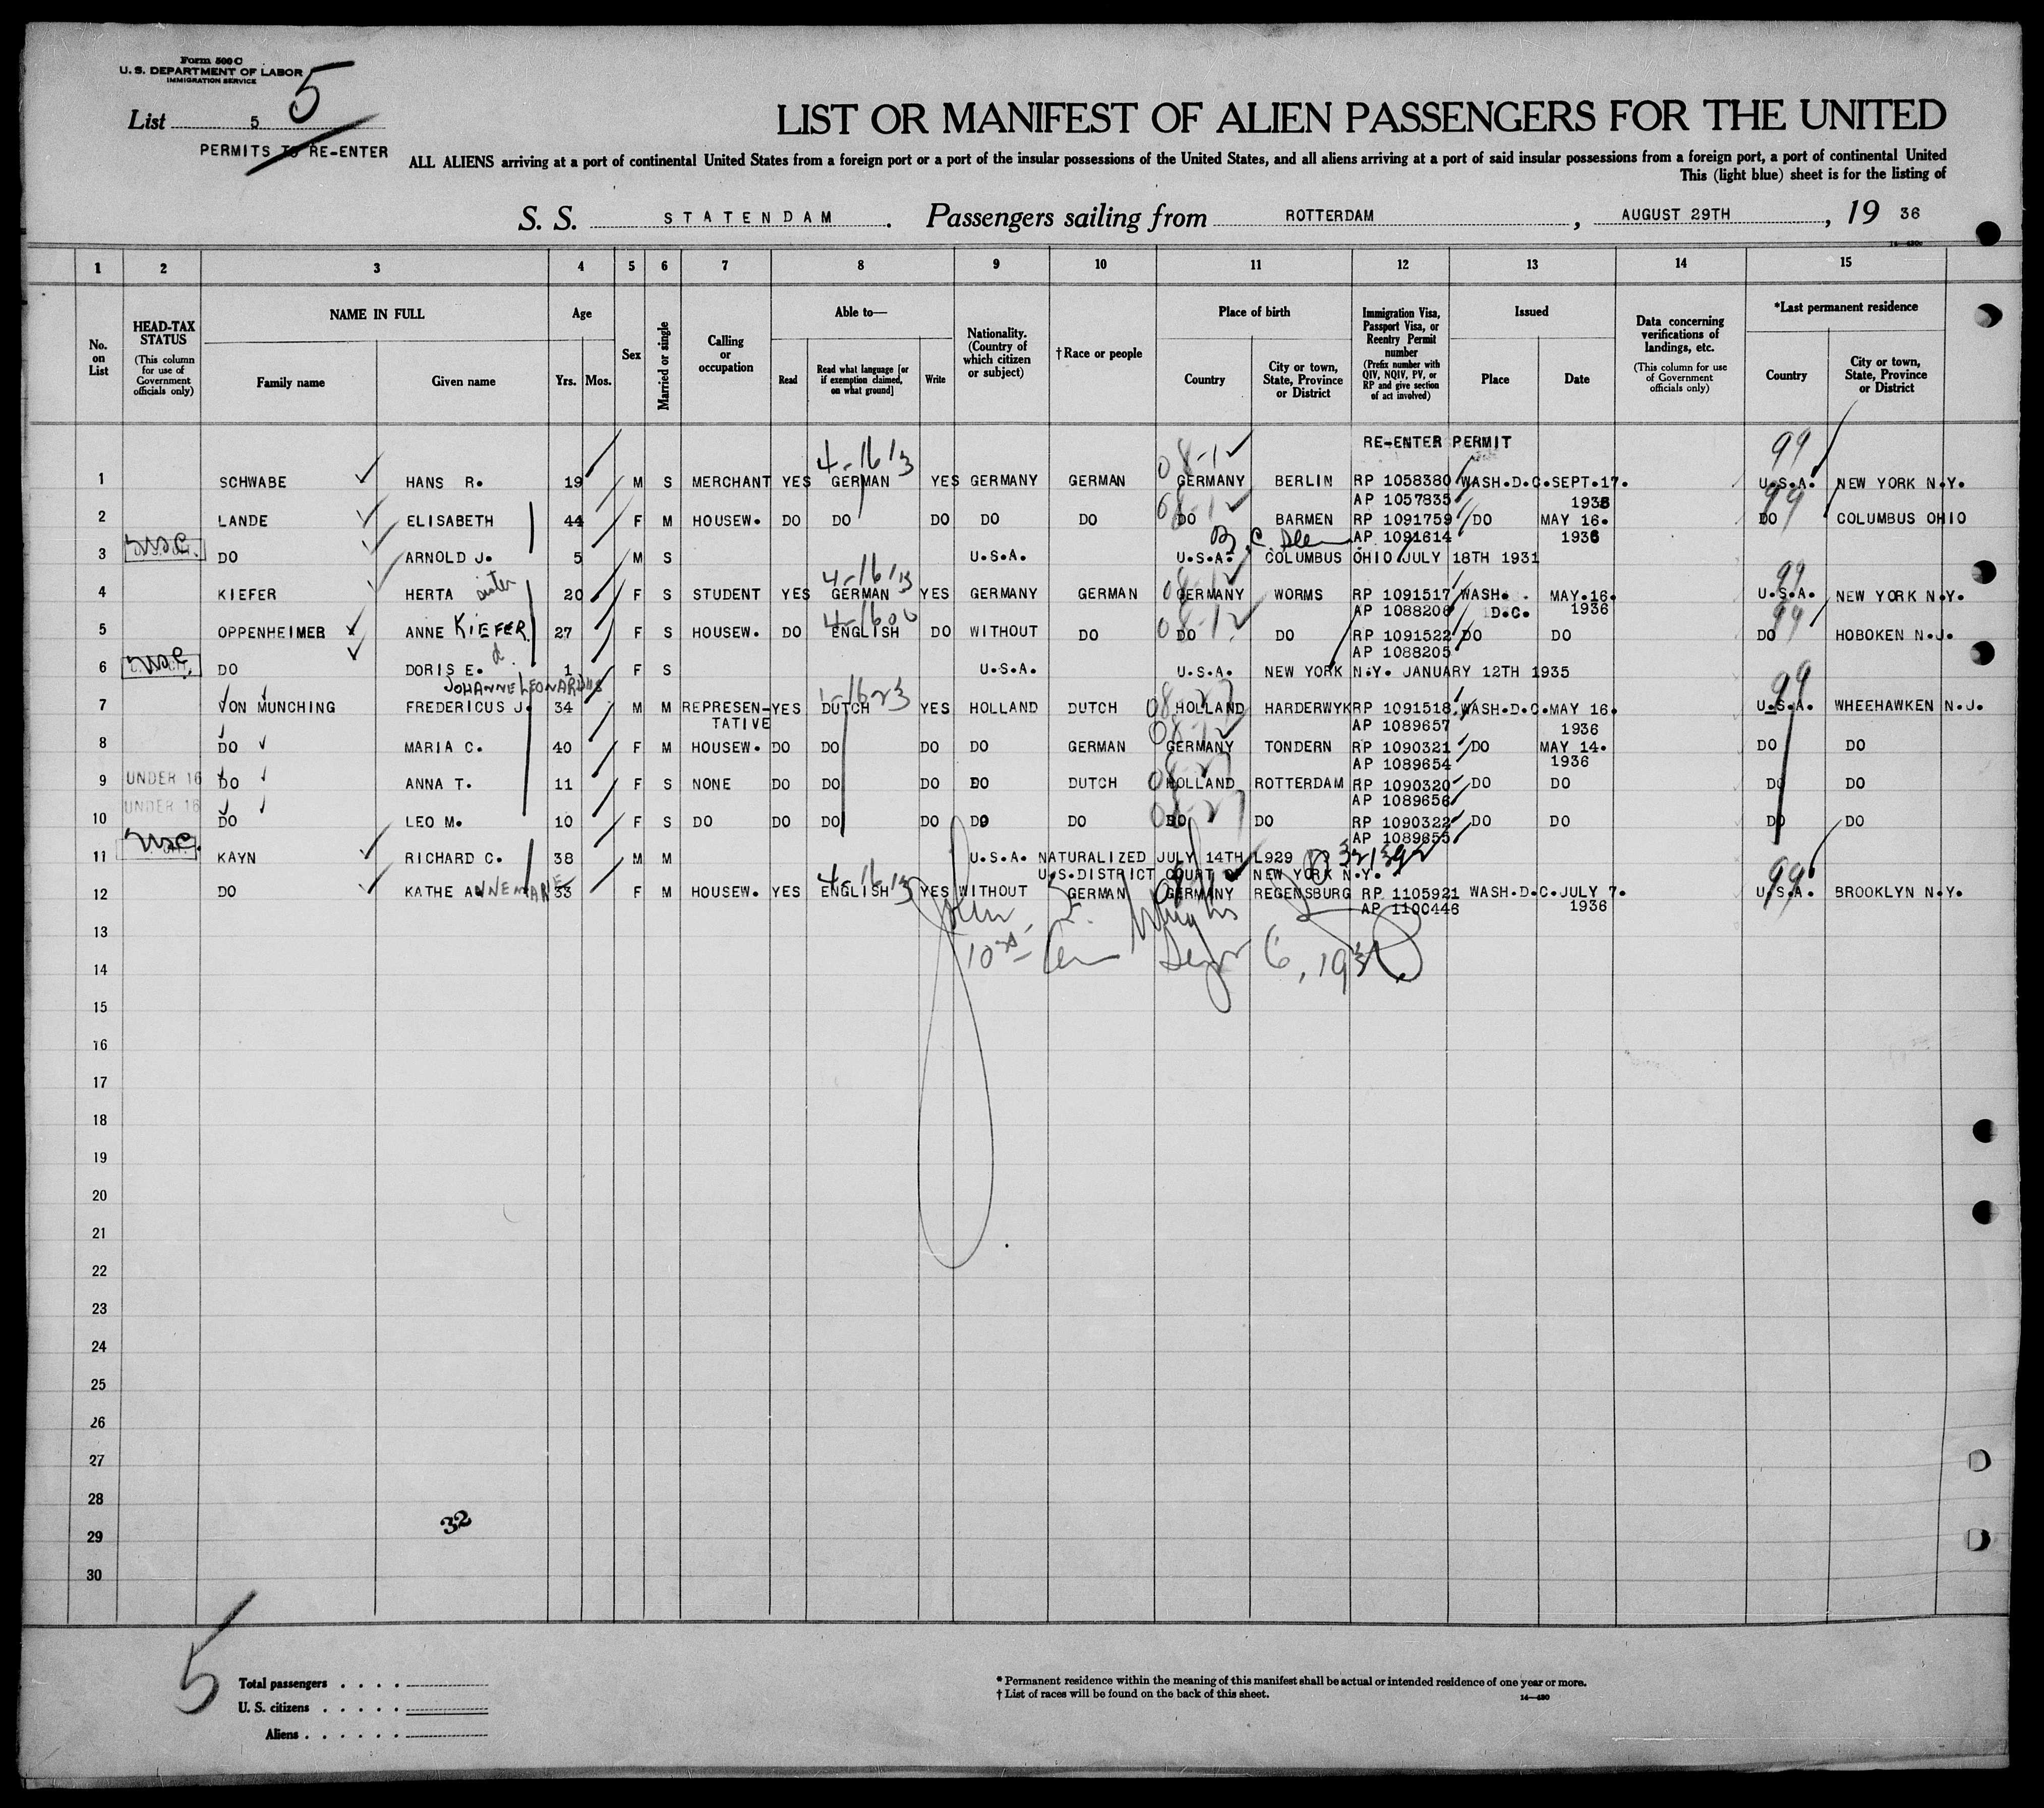 Form 500 C
U. S. DEPARTMENT OF LABOR
IMMIGRATION SERVICE
5
List 5
PERMITS TO RE-ENTER
LIST OR MANIFEST OF ALIEN PASSENGERS FOR THE UNITED
ALL ALIENS arriving at a port of continental United States from a foreign port or a port of the insular possessions of the United States, and all aliens arriving at a port of said insular possessions from a foreign port, a port of continental United
This (light blue) sheet is for the listing of
S. S. STATENDAM. Passengers sailing from ROTTERDAM, AUGUST 29TH, 19 36
1 2 3 4 5 6 7 8 9 10 11 12 13 14 15
No. on List
HEAD-TAX STATUS
(This column for use of Government officials only)
NAME IN FULL
Family name Given name
Age
Yrs. Mos.
Sex
Married or single
Calling or occupation
Able to—
Read
Read what language [or if exemption claimed, on what ground]
Write
Nationality. (Country of which citizen or subject)
†Race or people
Place of birth
Country
City or town, State, Province or District
Immigration Visa, Passport Visa, or Reentry Permit number
(Prefix number with QIV, NQIV, PV, or RP and give section of act involved)
Issued
Place Date
Data concerning verifications of landings, etc.
(This column for use of Government officials only)
*Last permanent residence
Country
City or town, State, Province or District
RE-ENTER PERMIT
4-16 13 08-12 99
1 SCHWABE HANS R. 19 M S MERCHANT YES GERMAN YES GERMANY GERMAN GERMANY BERLIN RP 1058380 WASH.D.C. SEPT.17. U.S.A. NEW YORK N.Y.
AP 1057835 1935
08-12 99
2 LANDE ELISABETH 44 F M HOUSEW. DO DO DO DO DO DO BARMEN RP 1091759 DO MAY 16. DO COLUMBUS OHIO
AP 1091614 1936
USC
3 DO ARNOLD J. 5 M S U.S.A. U.S.A. COLUMBUS OHIO JULY 18TH 1931
4-16 13 08-12 99
4 KIEFER HERTA sister 20 F S STUDENT YES GERMAN YES GERMANY GERMAN GERMANY WORMS RP 1091517 WASH. MAY.16. U.S.A. NEW YORK N.Y.
AP 1088206 D.C. 1936
4-16 00 08-12 99
5 OPPENHEIMER ANNE KIEFER 27 F S HOUSEW. DO ENGLISH DO WITHOUT DO DO DO RP 1091522 DO DO DO HOBOKEN N.J.
AP 1088205
USC
6 DO DORIS E. d. 1 F S U.S.A. U.S.A. NEW YORK N.Y. JANUARY 12TH 1935
JOHANNE LEONARDUS
16 23 08-27 99
7 VON MUNCHING FREDERICUS J. 34 M M REPRESEN- YES DUTCH YES HOLLAND DUTCH HOLLAND HARDERWYK RP 1091518 WASH.D.C. MAY 16. U.S.A. WHEEHAWKEN N.J.
TATIVE AP 1089657 1936
08-12
8 DO MARIA C. 40 F M HOUSEW. DO DO DO DO GERMAN GERMANY TONDERN RP 1090321 DO MAY 14. DO DO
AP 1089654 1936
08-27
9 UNDER 16 DO ANNA T. 11 F S NONE DO DO DO DO DUTCH HOLLAND ROTTERDAM RP 1090320 DO DO DO DO
AP 1089656
UNDER 16 08-27
10 DO LEO M. 10 F S DO DO DO DO DO DO DO DO RP 1090322 DO DO DO DO
AP 1089655
USC
11 KAYN RICHARD C. 38 M M U.S.A. NATURALIZED JULY 14TH L929
U.S.DISTRICT COURT OF NEW YORK N.Y.
4-16 13 99
12 DO KATHE ANNEMARIE 33 F M HOUSEW. YES ENGLISH YES WITHOUT GERMAN GERMANY REGENSBURG RP 1105921 WASH.D.C. JULY 7. U.S.A. BROOKLYN N.Y.
AP 1100446 1936
13
14
15
16
17
18
19
20
21
22
23
24
25
26
27
28
29
30
32
5
Total passengers . . . .
U. S. citizens . . . . .
Aliens . . . . . .
* Permanent residence within the meaning of this manifest shall be actual or intended residence of one year or more.
† List of races will be found on the back of this sheet.
14—430